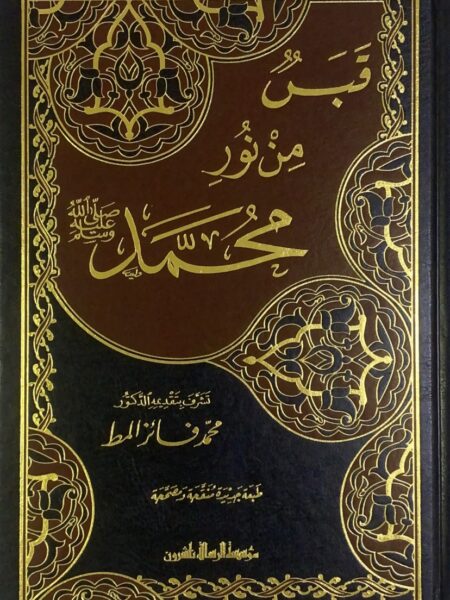 قَبَسٌ
مِنْ نُورِ
مُحَمَّد صَلَّى اللَّهُ عَلَيْهِ وَسَلَّم
تشرف بتقديمه الدكتور
محمد فائز المط
طبعة جديدة منقحة ومصححة
مؤسسة الرسالة ناشرون